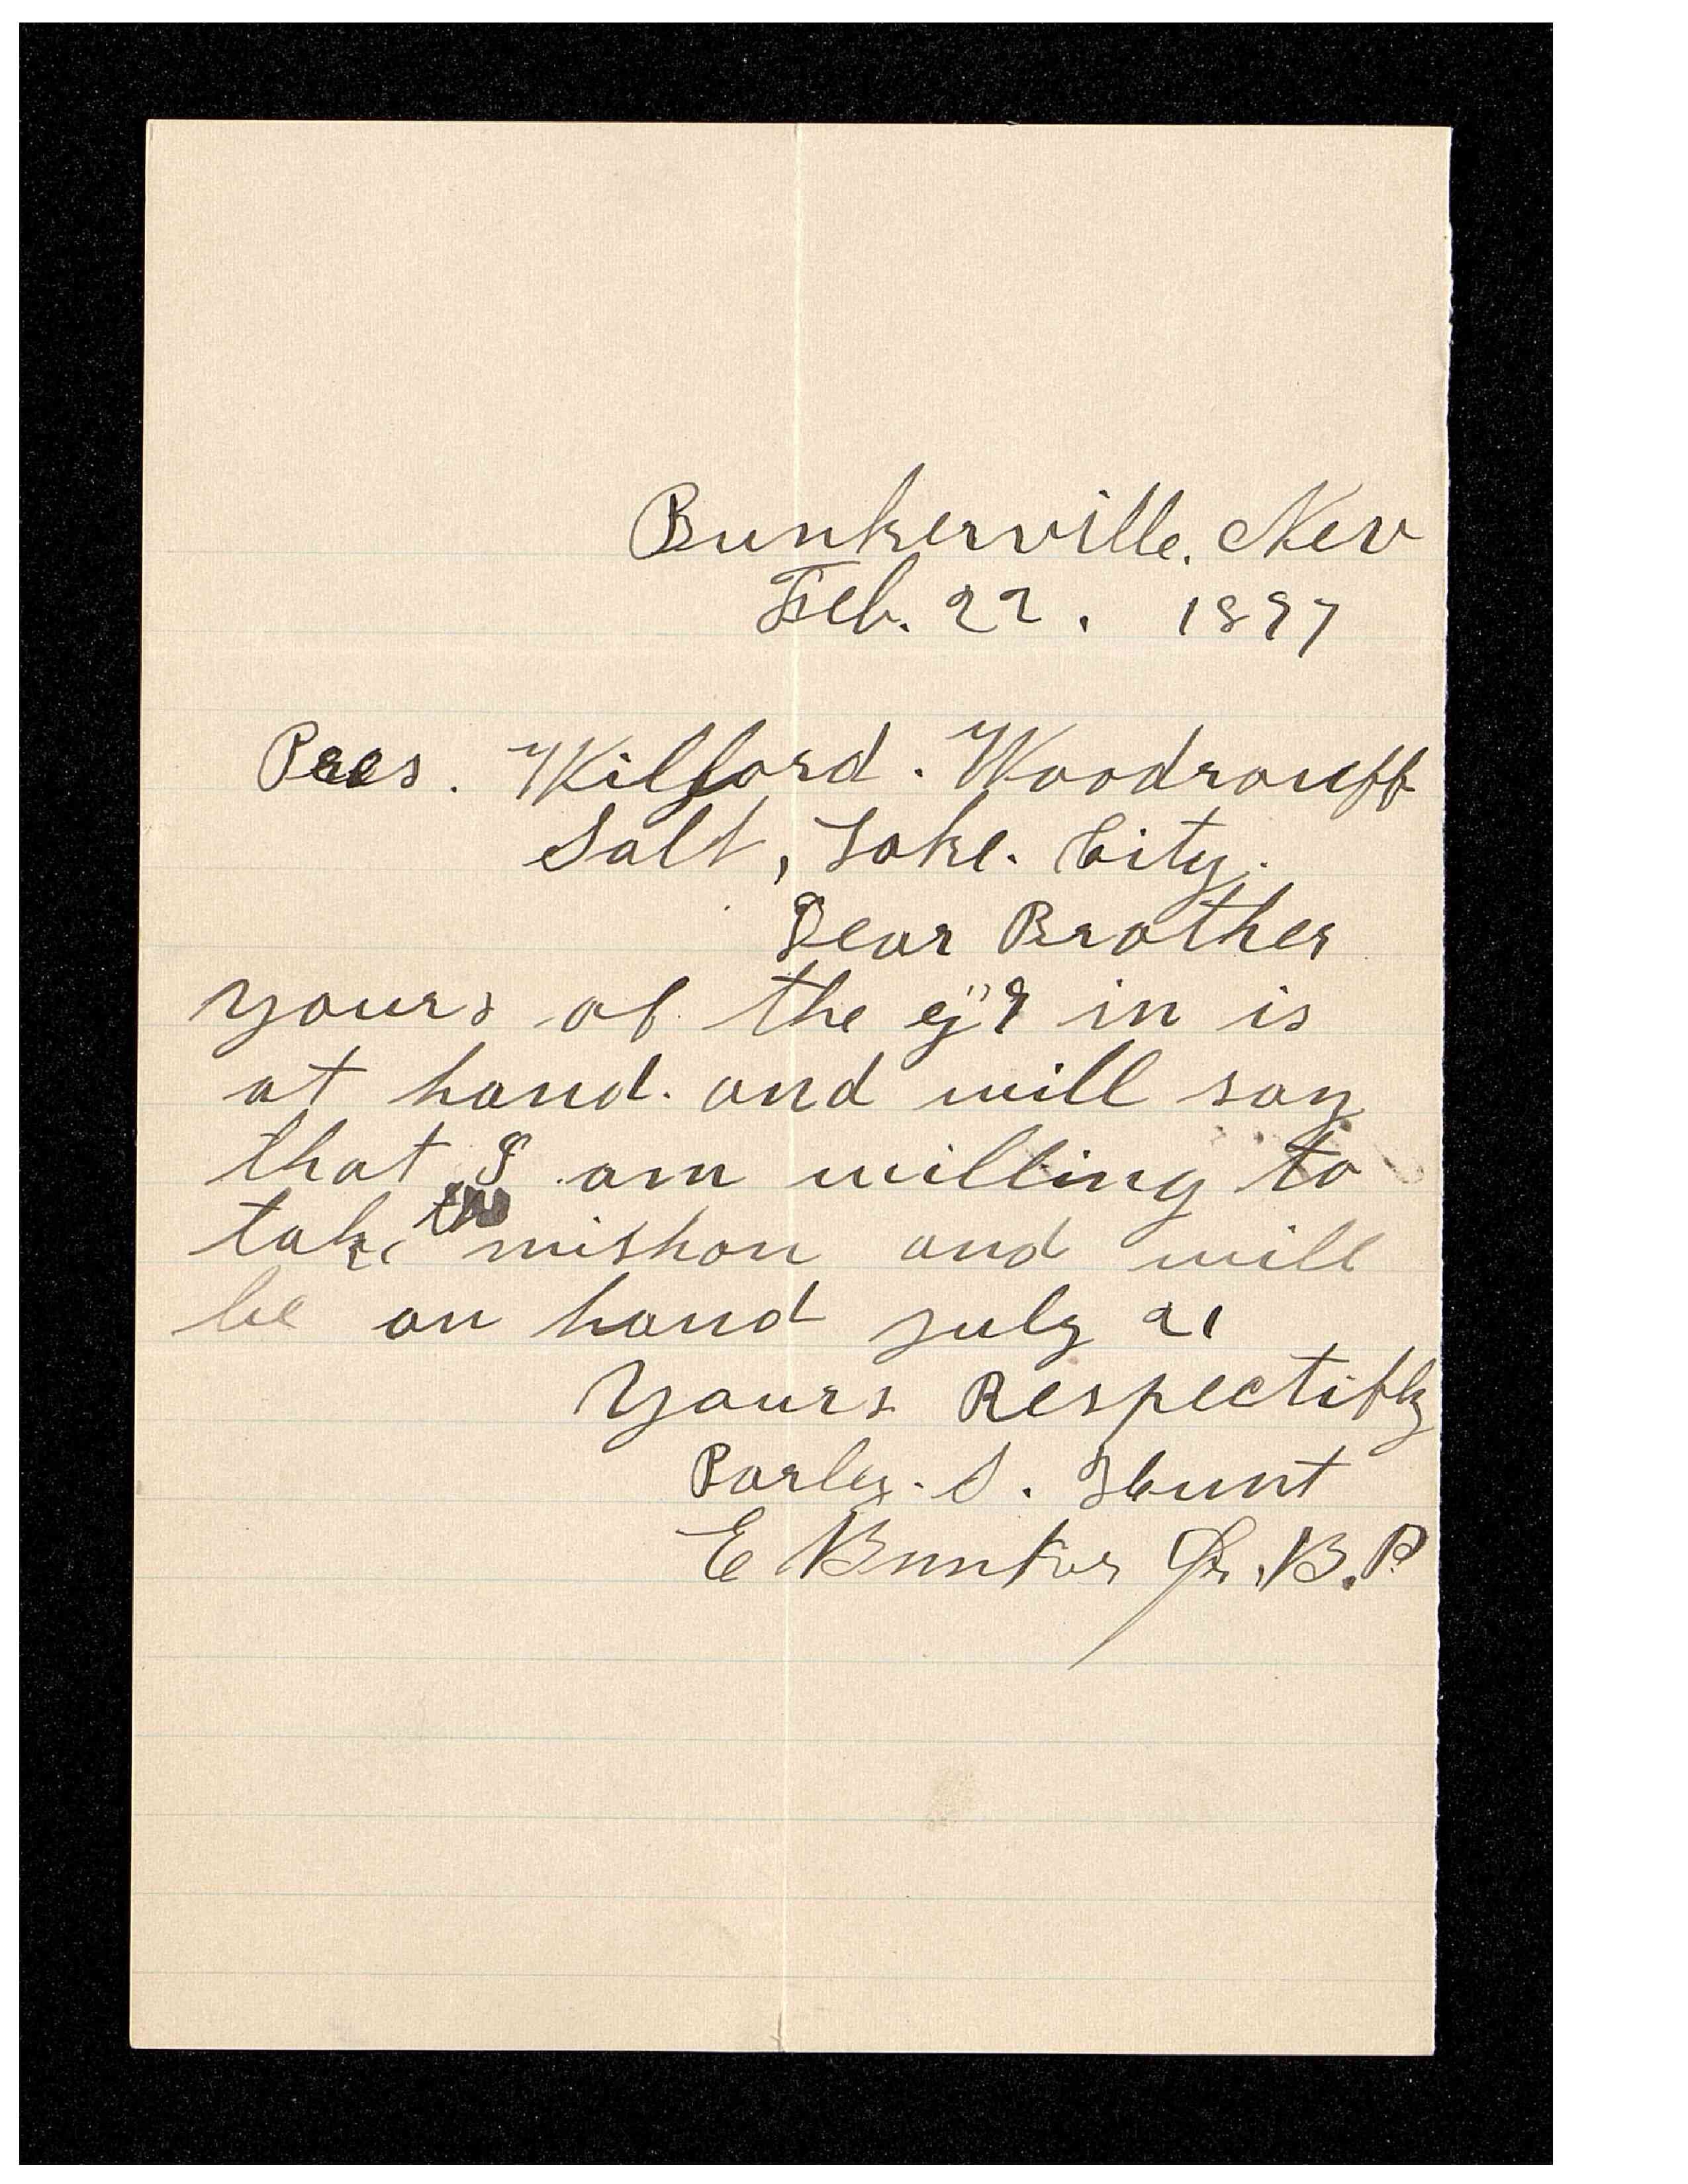 Bunkerville. Nev
Feb. 22. 1897
Pres. Wilford. Woodrouff
Salt, Lake. City.
Dear Brother
yours of the in is
at hand. and will say
that I am willing to
take the mishon and will
be on hand july 21
Yours Respectifly
Parley. S. Hunt
E Bunker Jr. B.P.